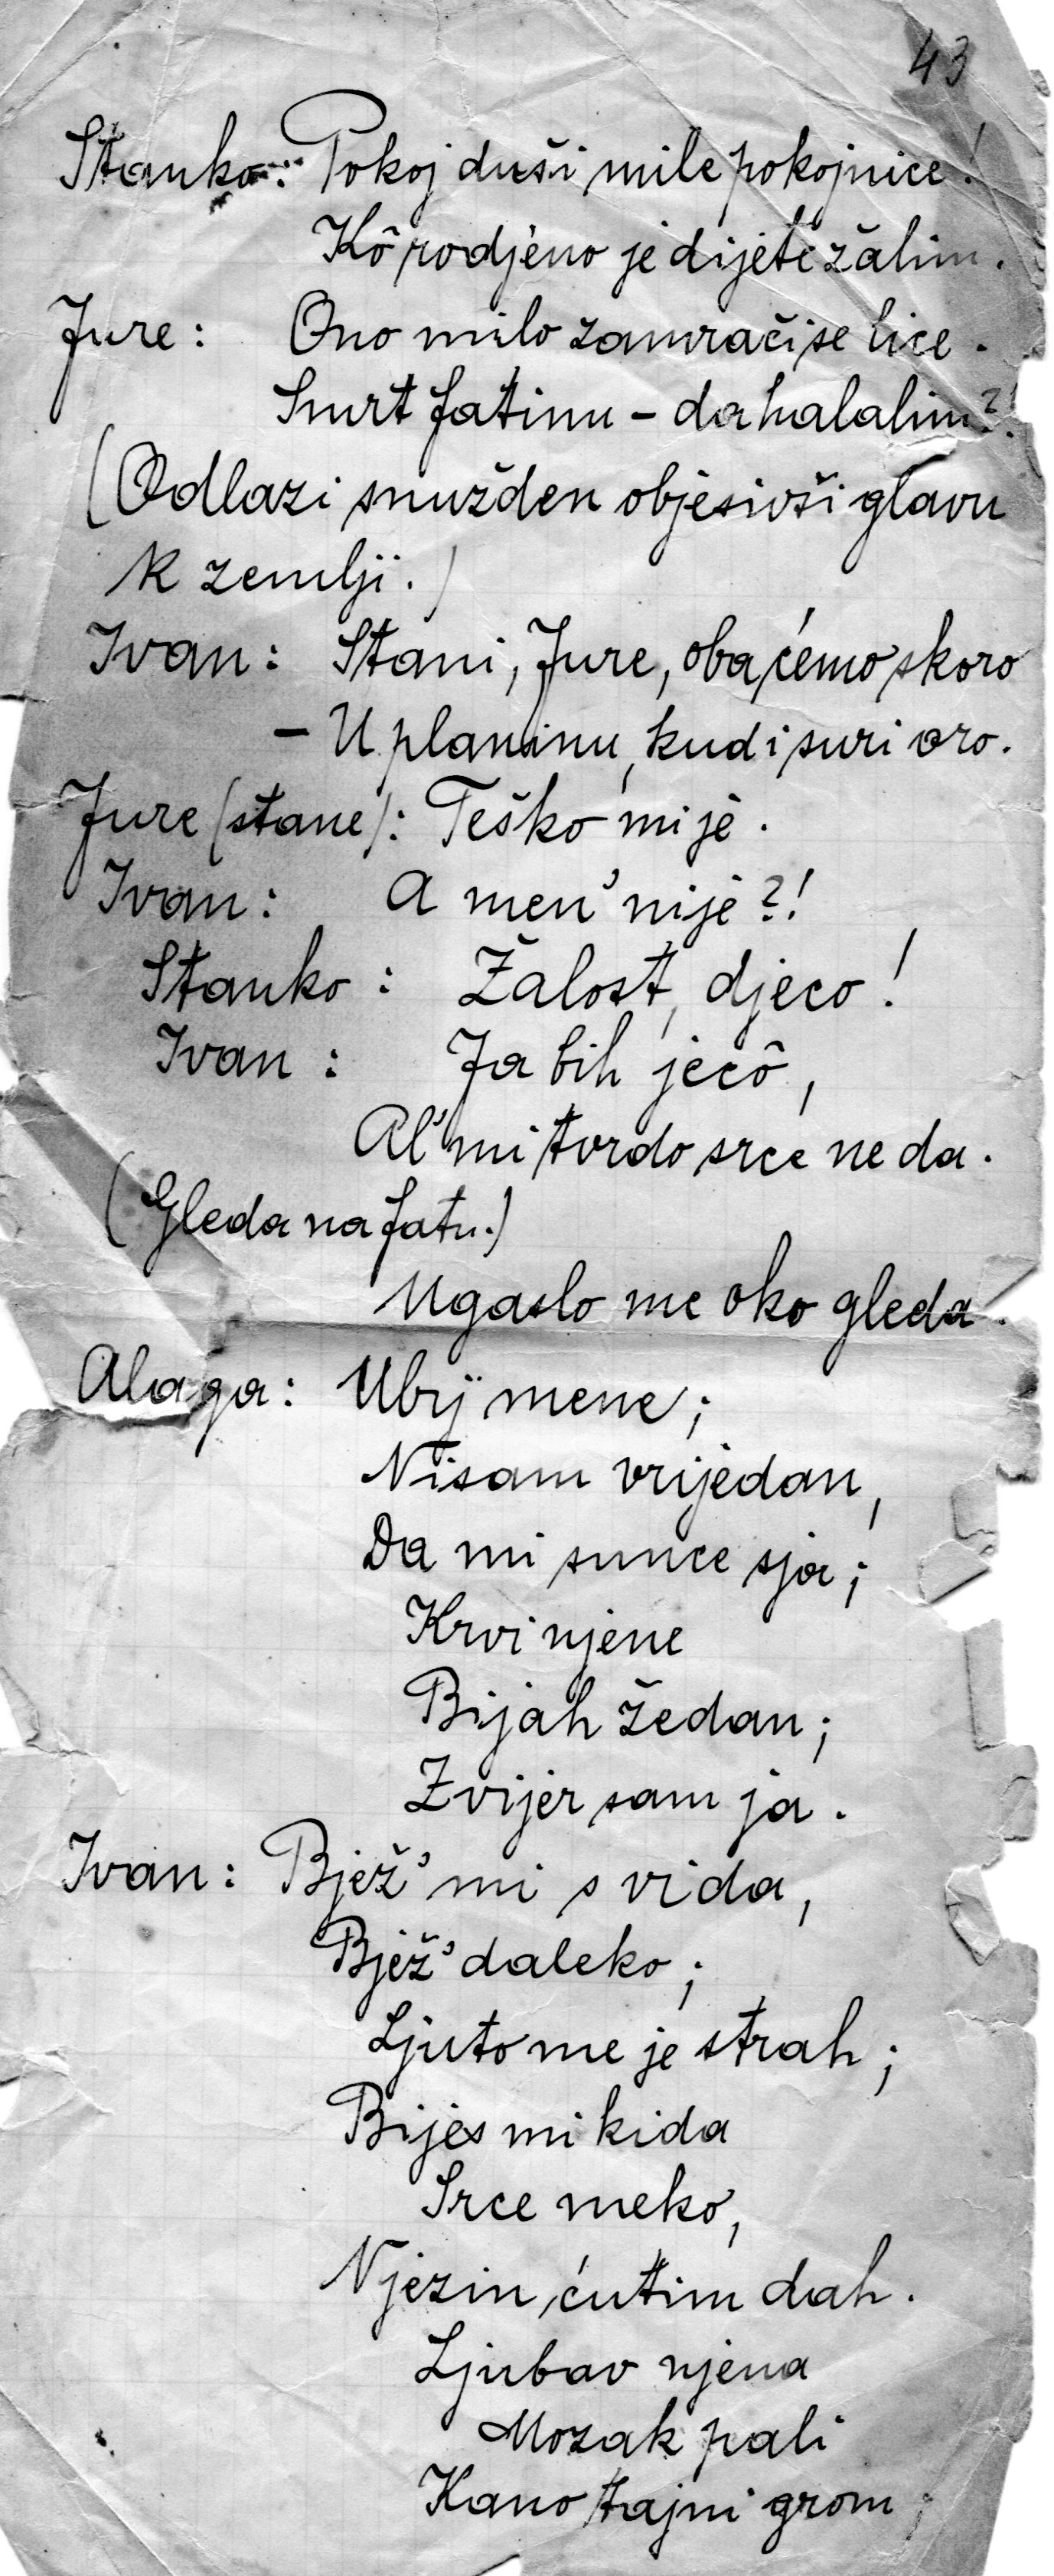 43
Stanko: Pokoj duši mile pokojnice!
Kô rodjeno je dijete žalim.
Jure: Ono milo zamračise lice.
Smrt fatinu – da halalim?!
(Odlazi snužden objesivši glavu
k zemlji.)
Ivan: Stani, Jure, oba ćemo skoro
– U planinu, kud i suri oro.
Jure (stane): Teško mi je.
Ivan: A men' nije?!
Stanko: Žalost, djeco!
Ivan: Ja bih jecô,
Al' mi tvrdo srce ne da.
(Gleda na fatu.)
Ugaslo me oko gleda.
Alaga: Ubij mene;
Nisam vrijedan,
Da mi sunce sja;
Krvi njene
Bijah žedan;
Zvijer sam ja.
Ivan: Bjež' mi s vida,
Bjež' daleko;
Ljuto me je strah;
Bijes mi kida
Srce meko,
Njezin ćutim dah.
Ljubav njena
Mozak pali
Kano tajni grom;